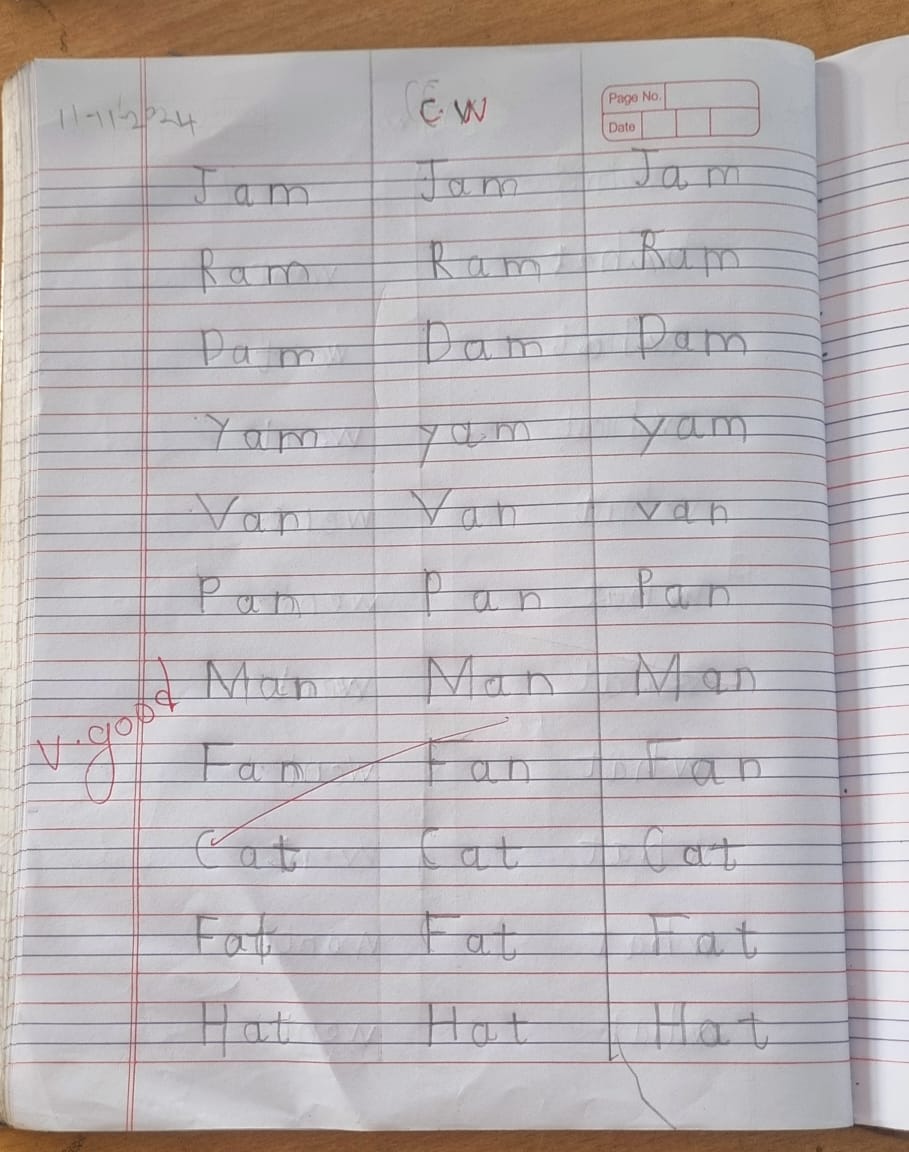 11-11-2024 C.W Page No.
Date
Jam Jam Jam
Ram Ram Ram
Dam Dam Dam
Yam yam yam
Van Van van
Pan Pan Pan
Man Man Man
V.good
Fan Fan Fan
Cat Cat Cat
Fat Fat Fat
Hat Hat Hat